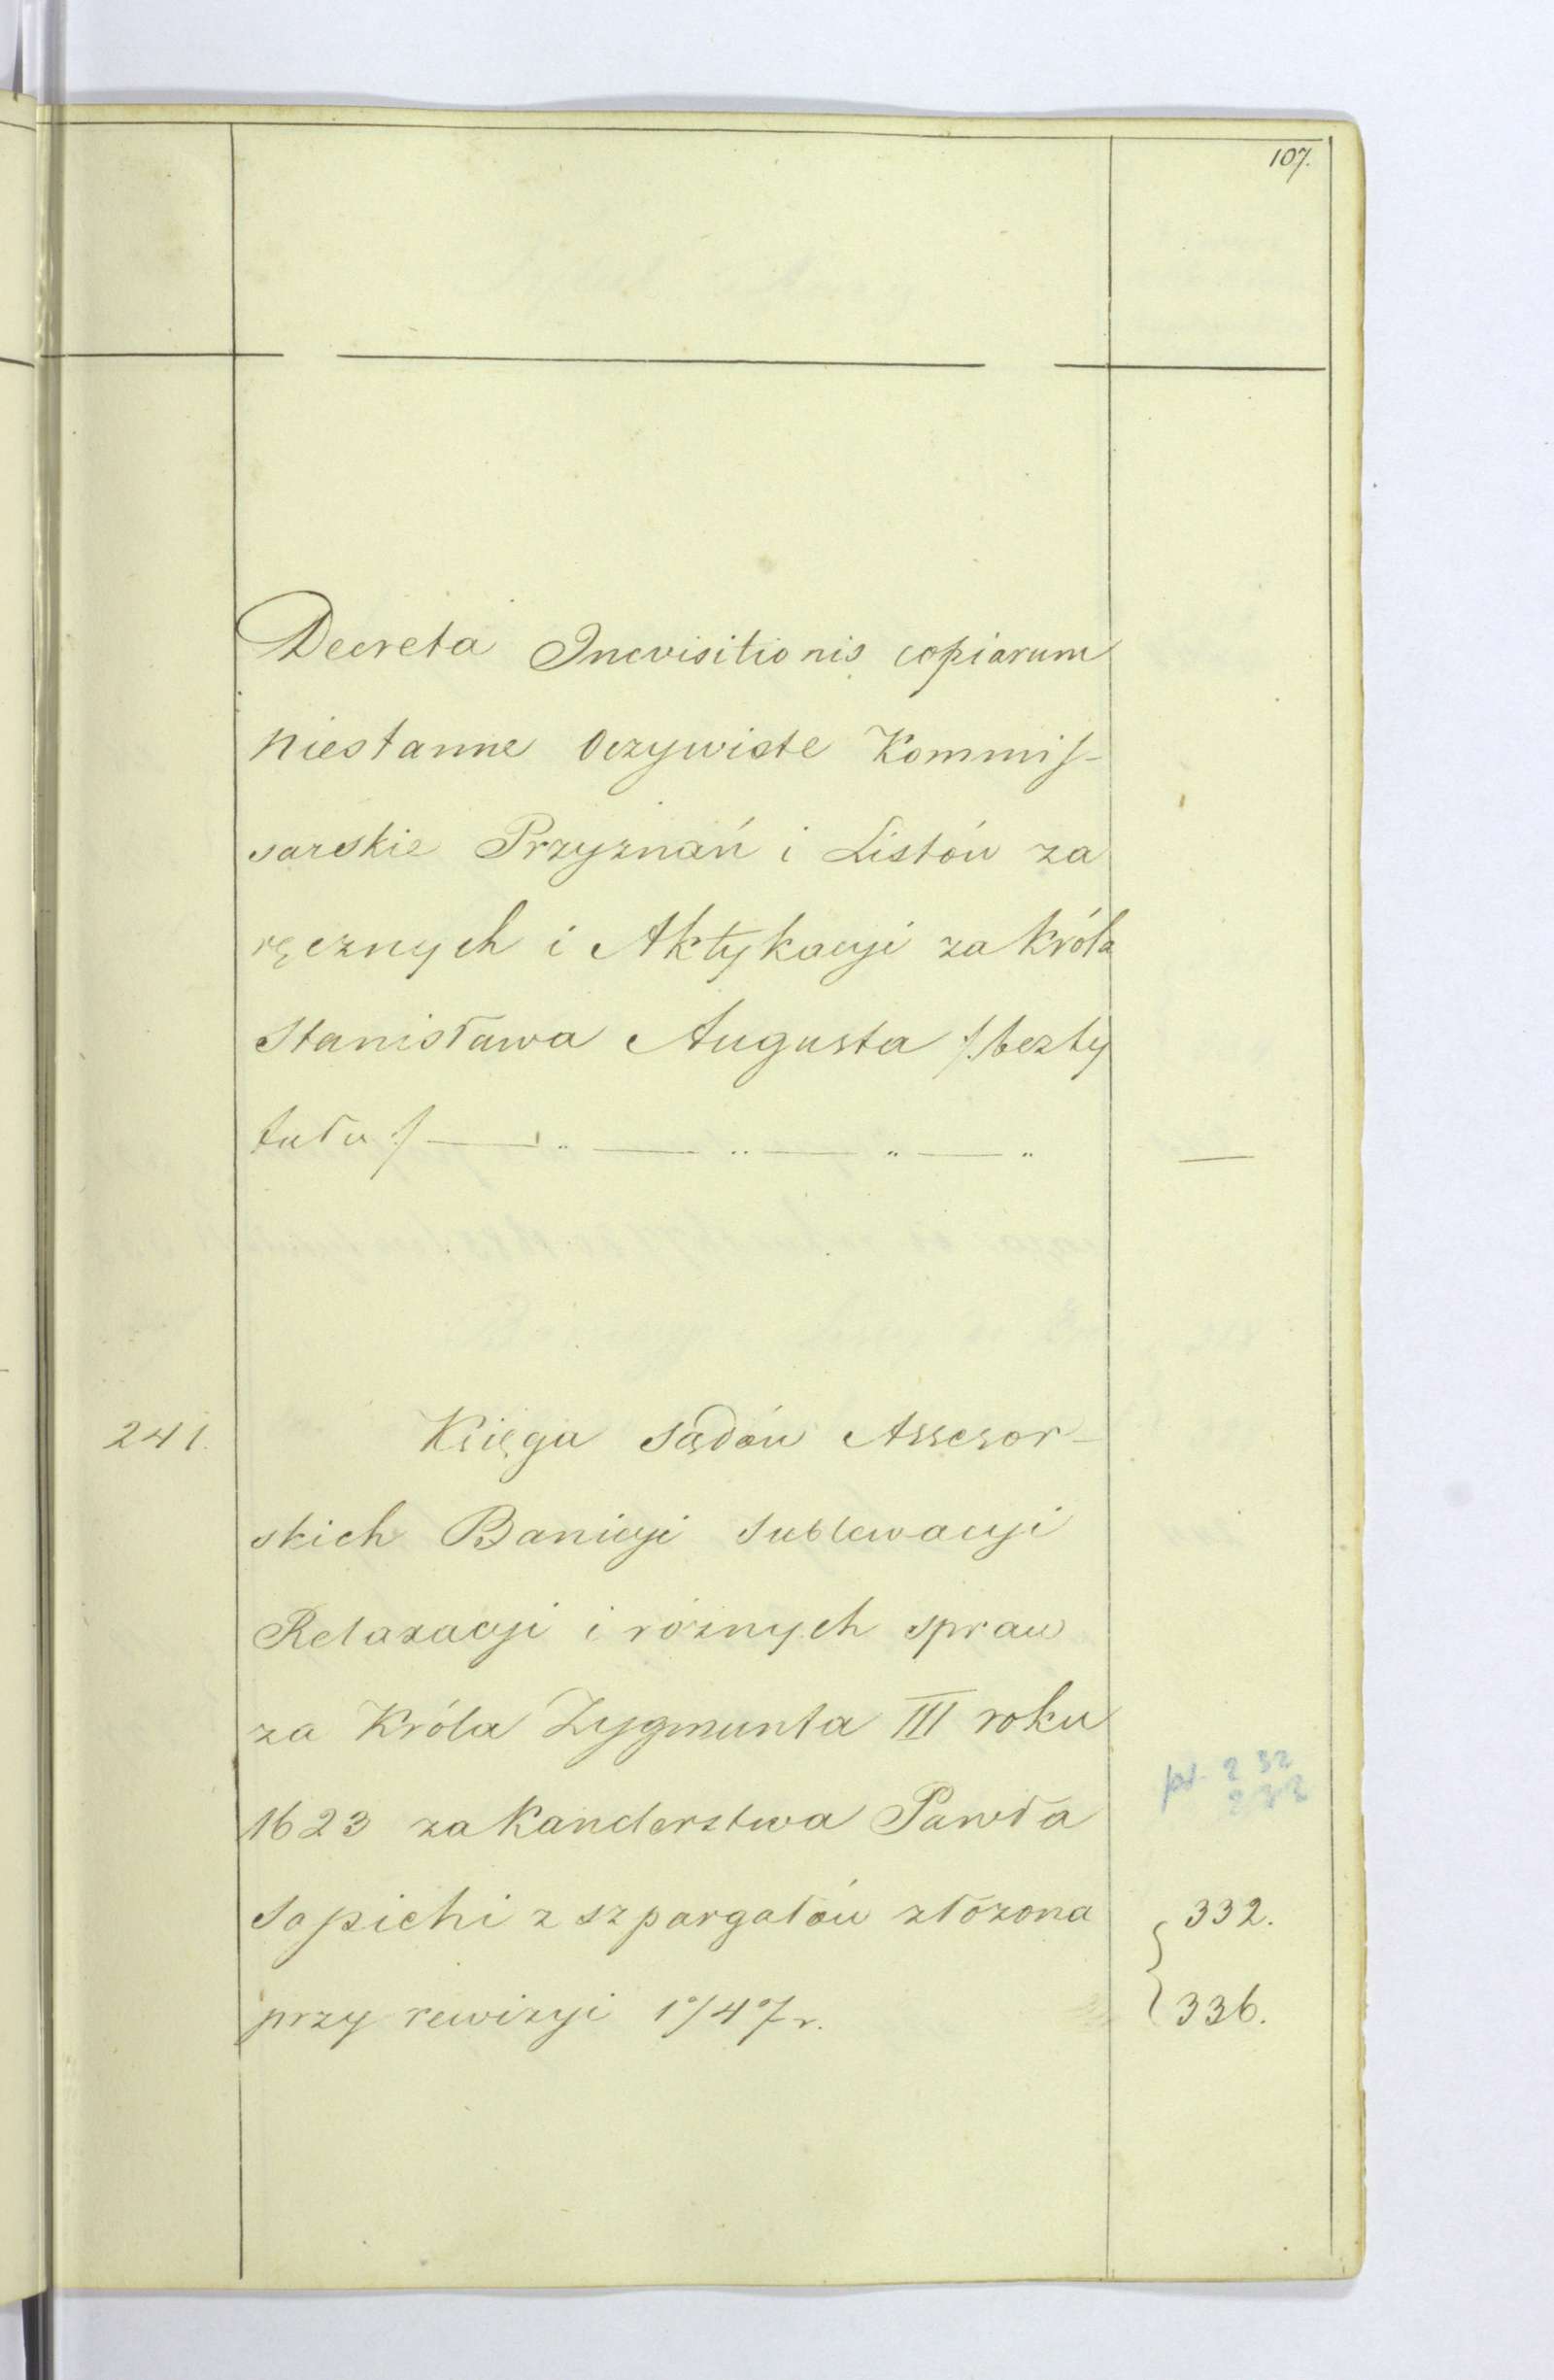 107.
Decreta Incvisitionis copiarum
niestanne Oczywiste Kommis-
sarskie Przyznań i Listów za
ręcznych i Aktykacyi za Króla
Stanisława Augusta /:bezty
tułu:/ — „ — „ — „ — „ —
241. Księga Sądów Assesor-
skich Banicyi Sublewacyi
Relaxacyi i róznych spraw
za Króla Zygmunta III roku
232
1623 za Kanclerstwa Pawła
Sapiehi z szpargałów złozona 332.
przy rewizyi 1747 r. 336.